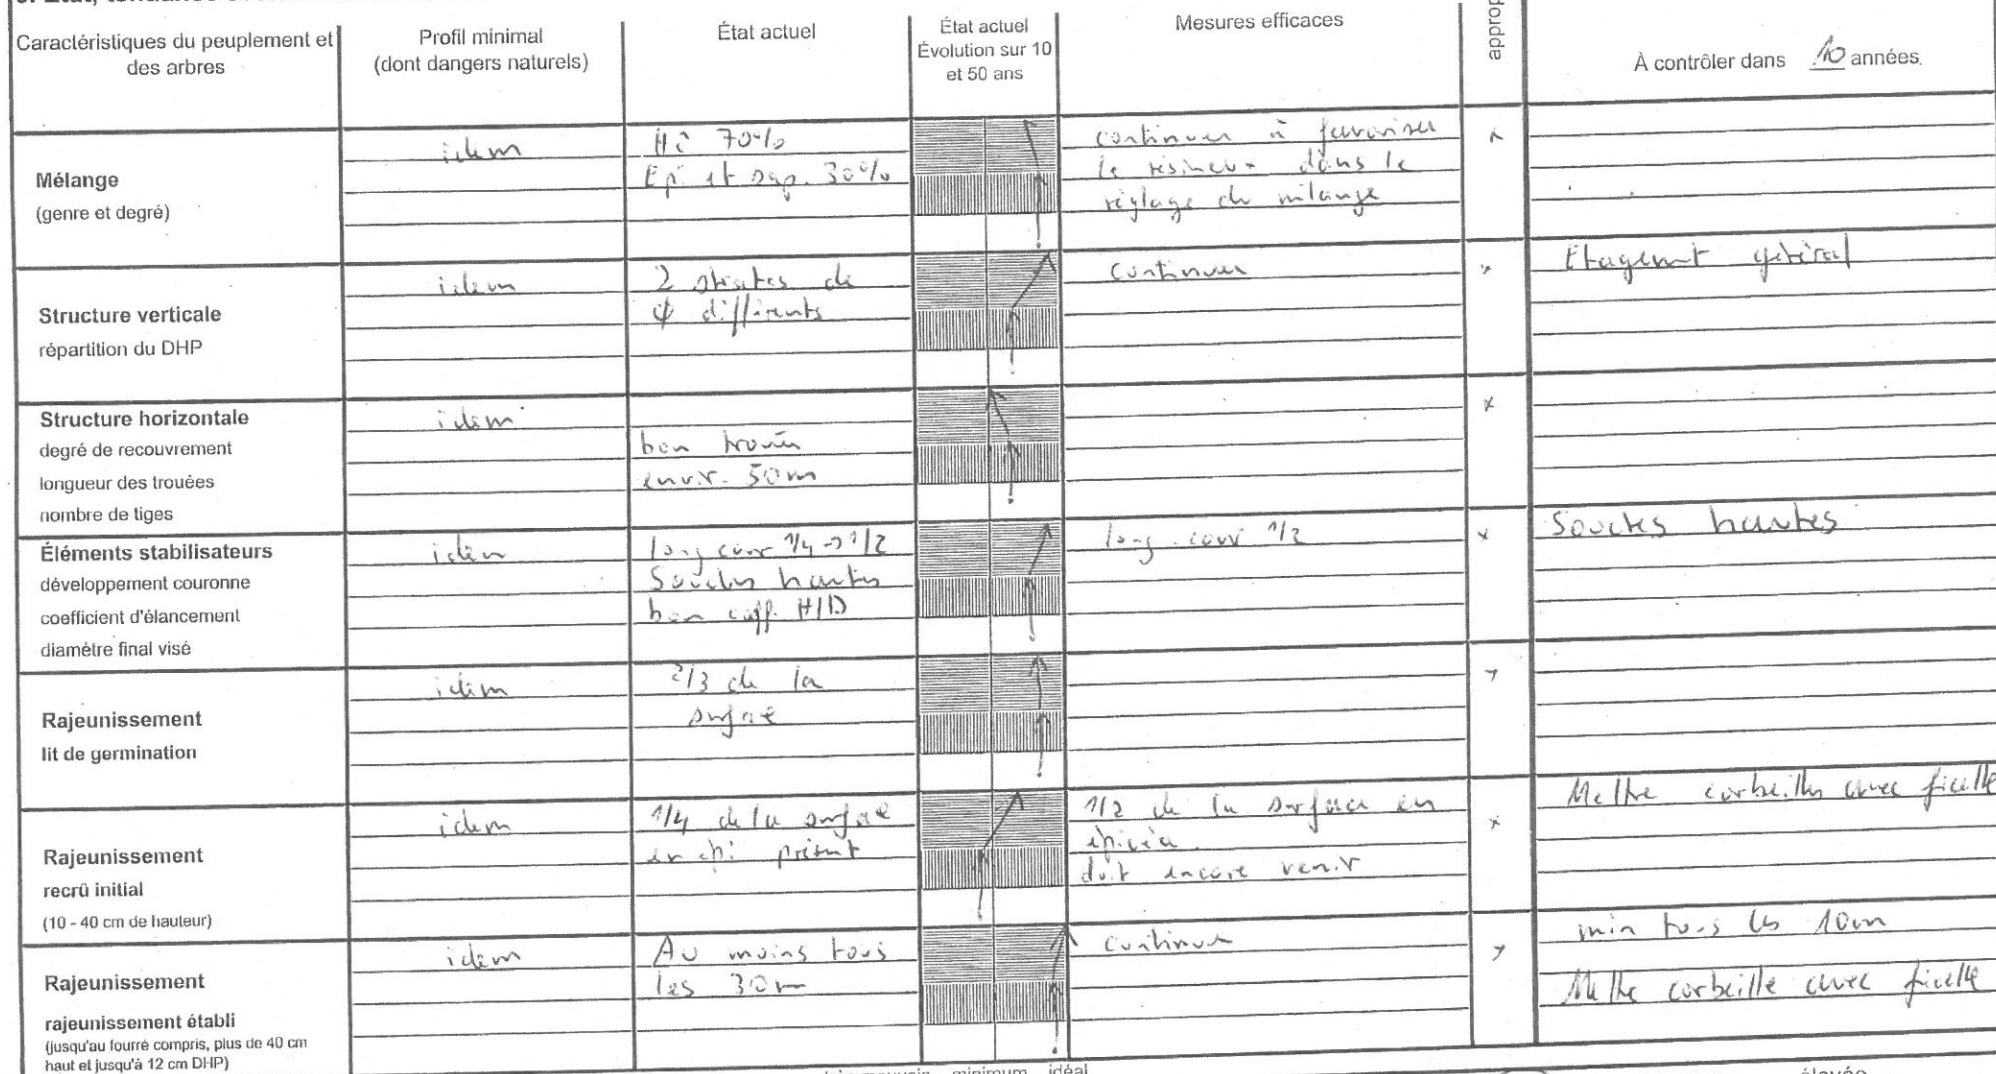 Caractéristiques du peuplement et
des arbres
Profil minimal
(dont dangers naturels)
État actuel
État actuel
Évolution sur 10
et 50 ans
Mesures efficaces
approp
À contrôler dans 10 années.
Mélange
(genre et degré)
idem
Hê 70%
Ep. et sap. 30%
continuer à favoriser
le résineux dans le
réglage du mélange
x
Structure verticale
répartition du DHP
idem
2 strates de
φ différents
continuer
x
Etagement général
Structure horizontale
degré de recouvrement
longueur des trouées
nombre de tiges
idem
bon
envir. 50m
x
Éléments stabilisateurs
développement couronne
coefficient d'élancement
diamètre final visé
idem
long cour 1/4 → 1/2
Souches hautes
bon coeff. H/D
long. cour 1/2
x
Souches hautes
Rajeunissement
lit de germination
idem
2/3 de la
surface
x
Rajeunissement
recrû initial
(10 - 40 cm de hauteur)
idem
1/4 de la surface
en épi présent
1/2 de la surface en
épicéa
doit encore venir
x
Mettre corbeilles avec ficelle
Rajeunissement
rajeunissement établi
(jusqu'au fourré compris, plus de 40 cm
haut et jusqu'à 12 cm DHP)
idem
Au moins tous
les 30m
continuer
x
min tous les 10m
Mettre corbeille avec ficelle
minimum idéal
élevée